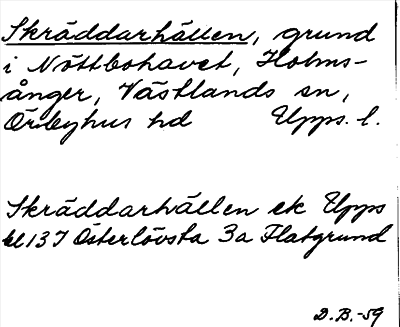 Skräddarhällen, grund
i Nöttbohavet, Holms-
ånger, Västlands sn,
Örbyhus hd Upps. l.
Skräddarhällen ek Upps
bl 137 Österlövsta 3a Flatgrund
D.B.-59